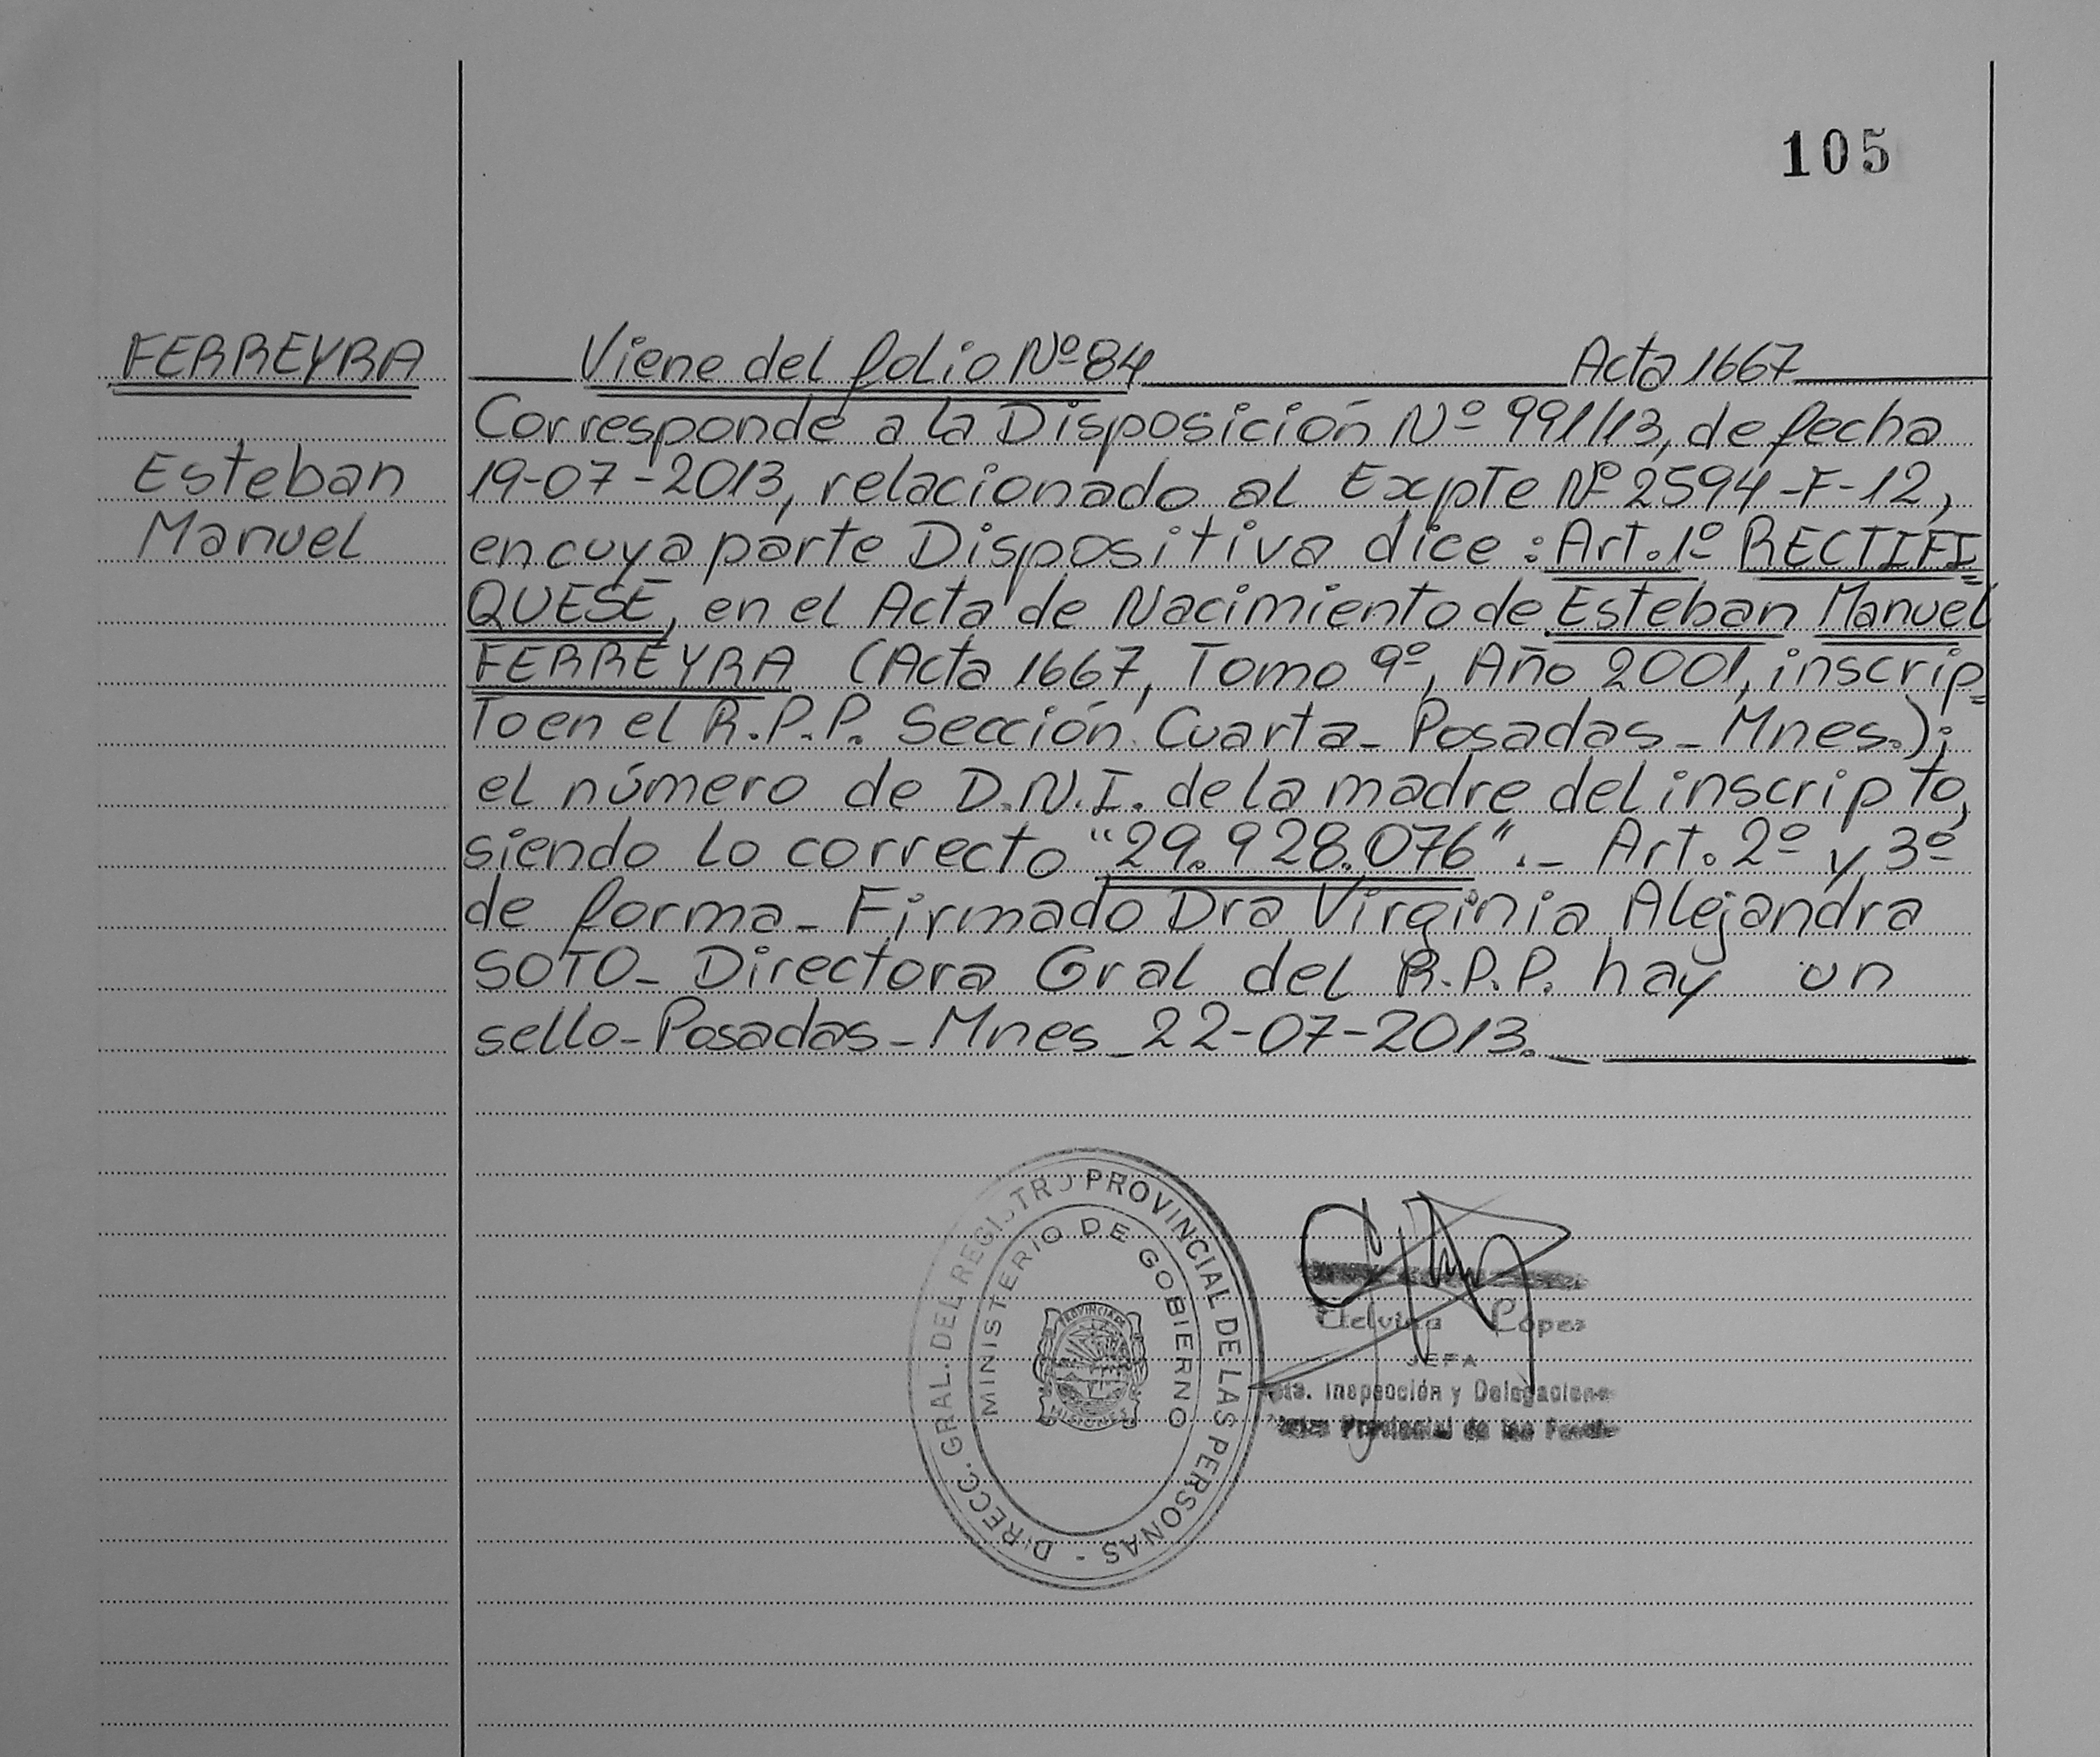 105
FERREYRA
Esteban
Manuel
Viene del folio Nº 84 Acta 1667
Corresponde a la Disposición Nº 991/13, de fecha
19-07-2013, relacionado al Expte Nº 2594-F-12,
en cuya parte Dispositiva dice: Art. 1º RECTIFI=
QUESE, en el Acta de Nacimiento de Esteban Manuel
FERREYRA (Acta 1667, Tomo 9º, Año 2001, inscrip=
to en el R.P.P. Sección Cuarta_ Posadas_ Mnes.);
el número de D.N.I. de la madre del inscripto,
siendo lo correcto "29.928.076"._ Art. 2º y 3º
de forma_ Firmado Dra Virginia Alejandra
SOTO_ Directora Gral del R.P.P. hay un
sello_Posadas_Mnes_22-07-2013._
DIRECC. GRAL. DEL REGISTRO PROVINCIAL DE LAS PERSONAS -
MINISTERIO DE GOBIERNO
PROVINCIA DE
MISIONES
López
JEFA
Inspección y Delegaciones
Provincial de las